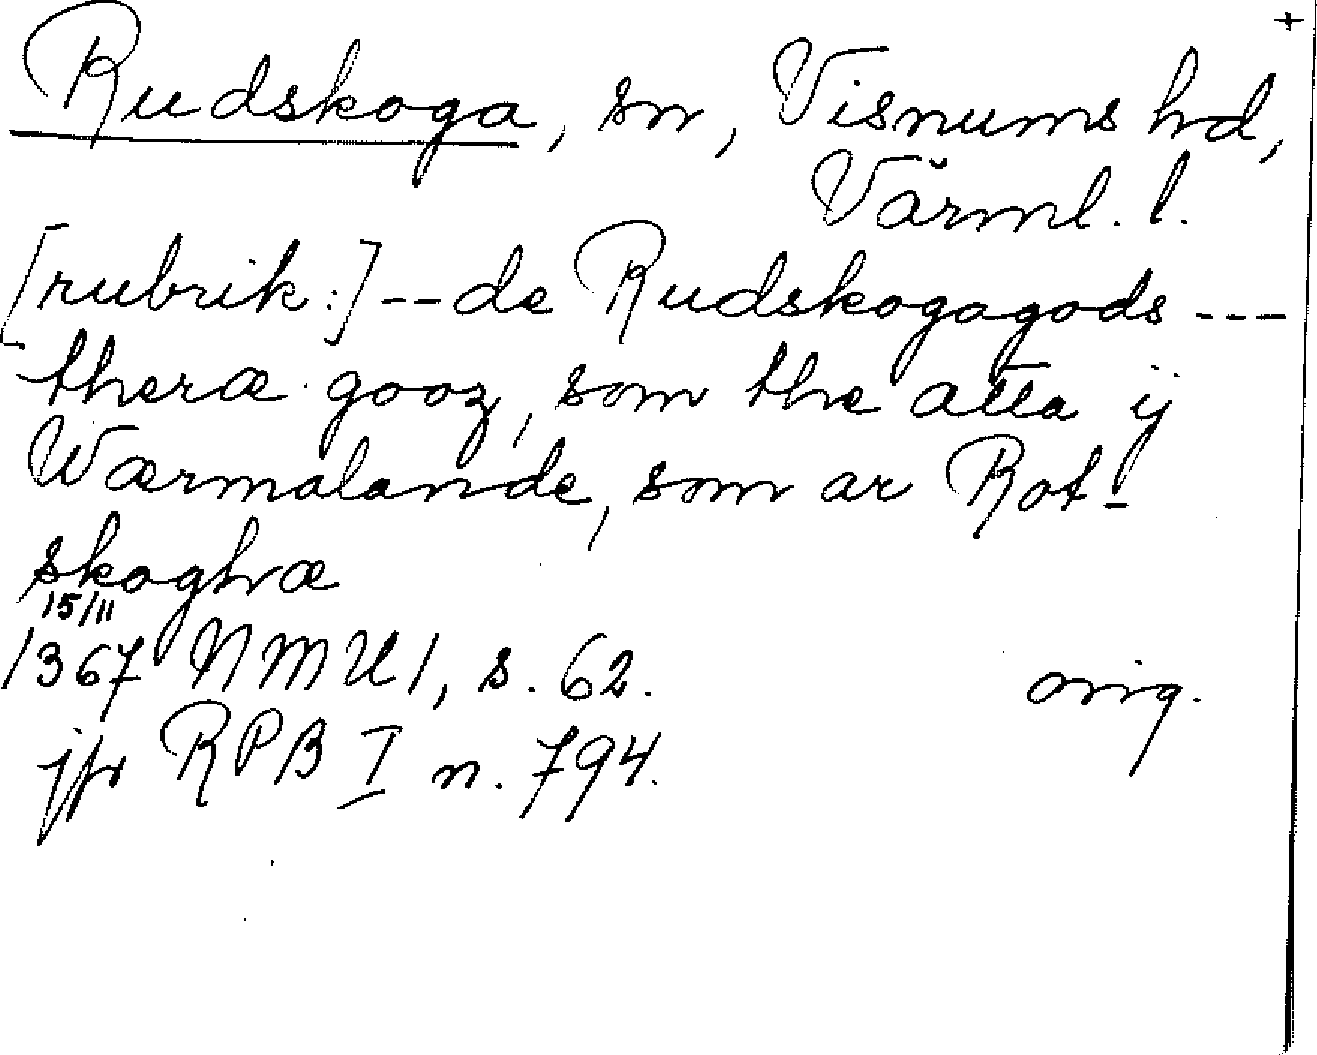 +
Rudskoga, sn, Visnums hd,
Värml. l.
[rubrik:] -- de Rudskogagods ---
theræ gooz, som the atta ij
Wærmalande, som ar Rot-
skoghæ
15/11
1367 NMU 1, s. 62. orig.
jfr RPB I n. 794.